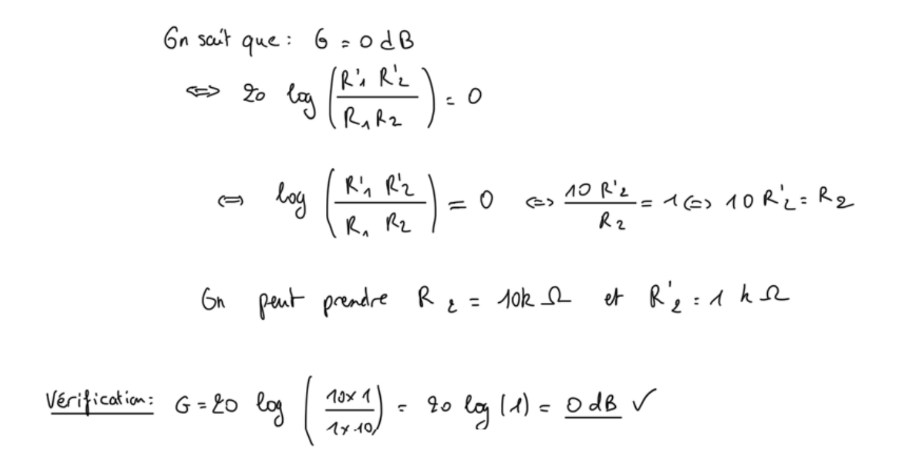 On sait que : G = 0 dB
⇔ 20 log (R'₁ R'₂ / R₁ R₂) = 0
⇔ log (R'₁ R'₂ / R₁ R₂) = 0 ⇔ 10 R'₂ / R₂ = 1 ⇔ 10 R'₂ = R₂
On peut prendre R₂ = 10k Ω et R'₂ = 1 k Ω
Vérification : G = 20 log (10 x 1 / 1 x 10) = 20 log (1) = 0 dB ✓